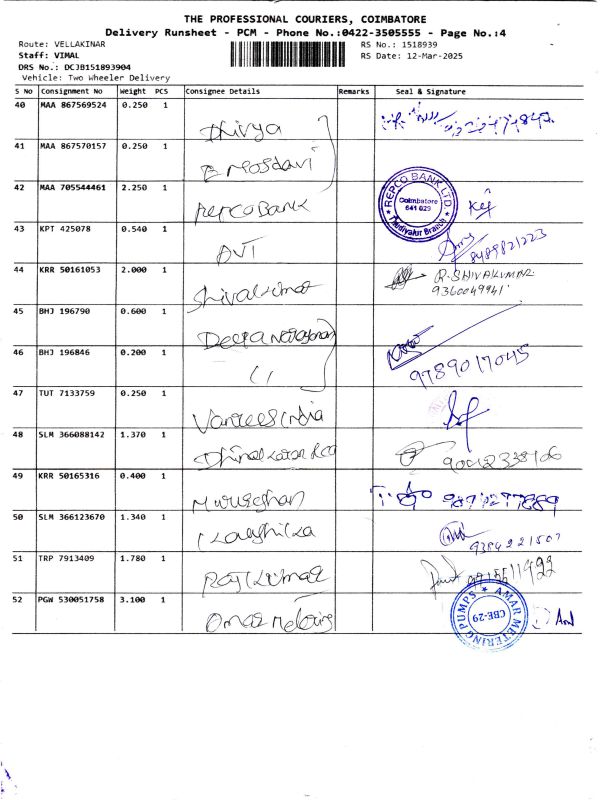 THE PROFESSIONAL COURIERS, COIMBATORE
Delivery Runsheet - PCM - Phone No.:0422-3505555 - Page No.:4
Route: VELLAKINAR RS No.: 1518939
Staff: VIMAL RS Date: 12-Mar-2025
DRS No.: DCJB151893904
Vehicle: Two Wheeler Delivery
S No Consignment No Weight PCS Consignee Details Remarks Seal & Signature
40 MAA 867569524 0.250 1
Dhivya
41 MAA 867570157 0.250 1
42 MAA 705544461 2.250 1
Repco Bank REPCO BANK LTD. Coimbatore 641 029
43 KPT 425078 0.540 1
AVT 8489821223
44 KRR 50161053 2.000 1
Shivakumar R. SHIVAKUMAR
9360049941
45 BHJ 196790 0.600 1
Deepa Narayanan
46 BHJ 196846 0.200 1
9789017045
47 TUT 7133759 0.250 1
India
48 SLM 366088142 1.370 1
49 KRR 50165316 0.400 1
Murugshan
50 SLM 366123670 1.340 1
9384221507
51 TRP 7913409 1.780 1
Rajkumar
52 PGW 530051758 3.100 1
AMAR METERING PUMPS CBE-29